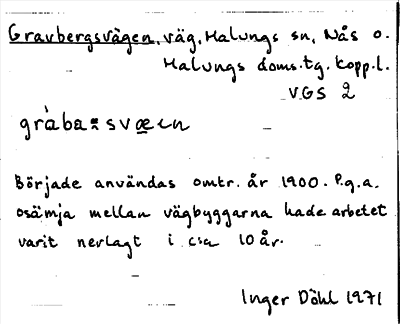 Gravbergsvägen, väg, Malungs sn, Nås o.
Malungs doms.tg. kopp.l.
VGS 2
gràba=svæen
Började användas omkr. år 1900. P.g.a.
osämja mellan vägbyggarna hade arbetet
varit nerlagt i c:a 10 år.
Inger Döhl 1971